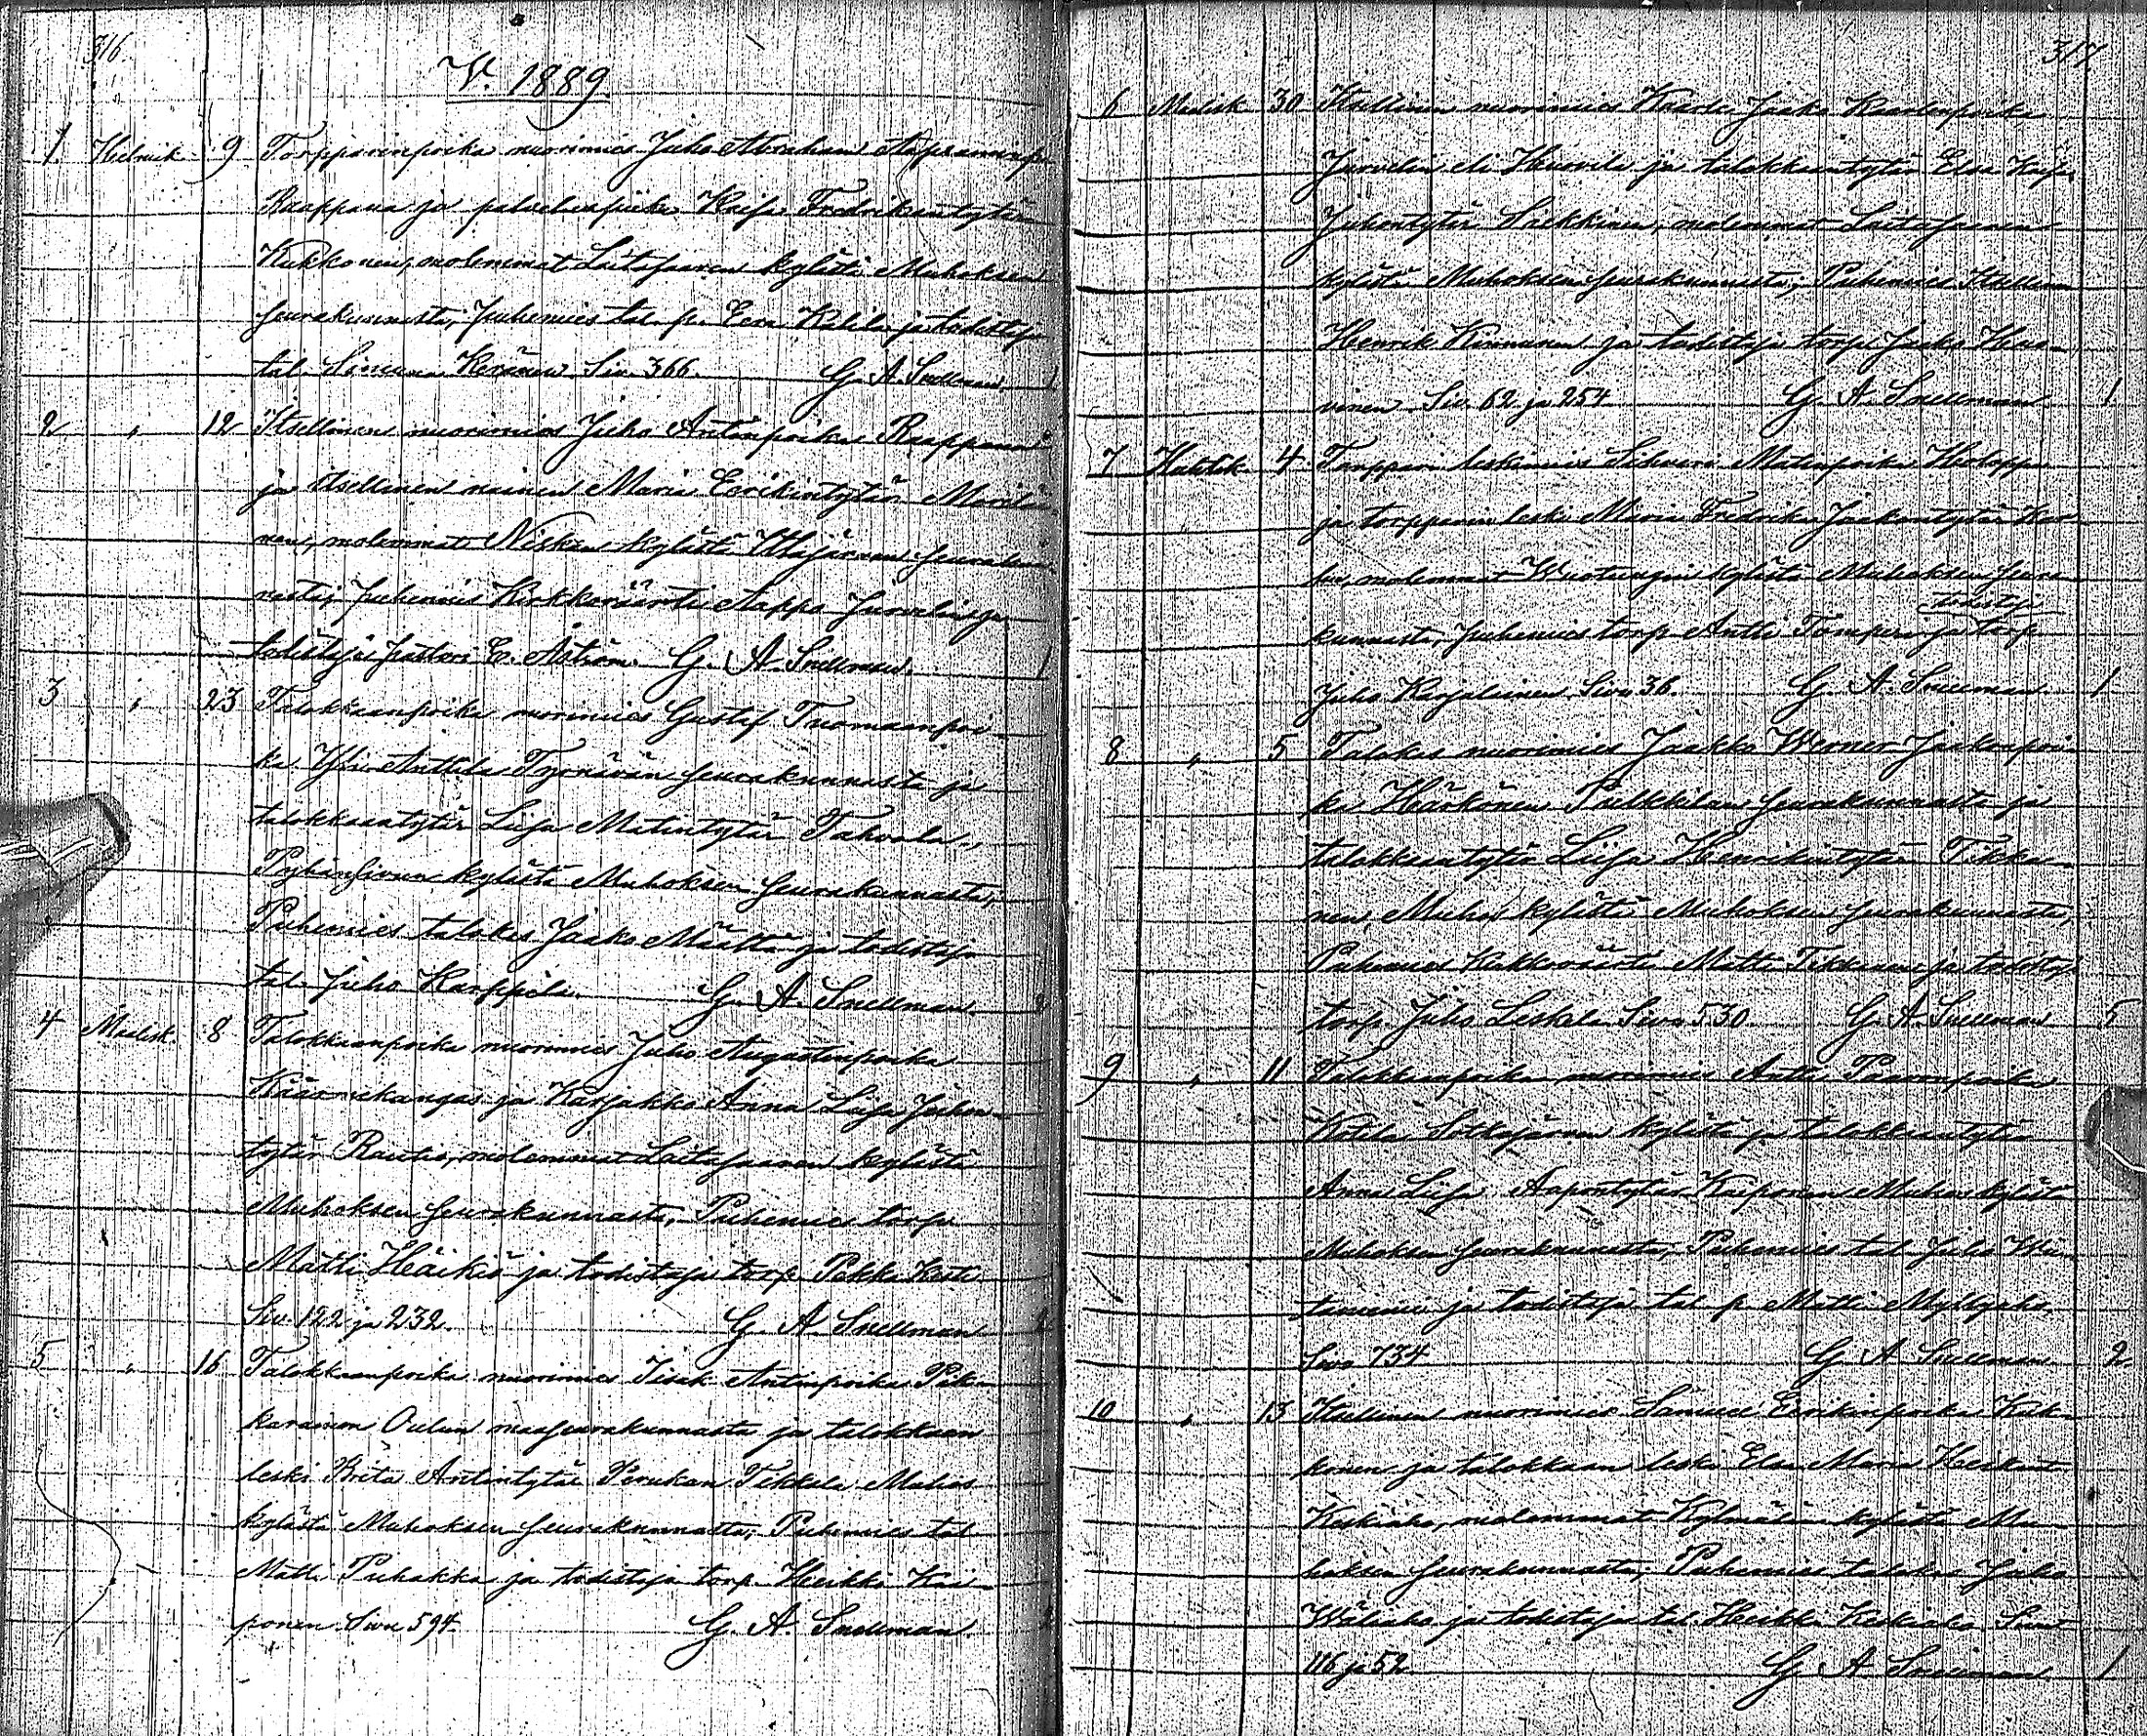 316
V. 1889
1 Helmik. 9 Torpparinpoika nuorimies Juho Abraham Aapraminp.
Raappana ja palvelianpiika Kaisa Fredrikintytär
Kukkonen, molemmat Laitasaaren kylästä Muhoksen
seurakunnasta; Puhemies tal. p. Eera Kälilä ja todistaja
tal. Simuna Keränen. Siv. 366. G. A. Snellman. 1
2 " 12 Itsellinen nuorimies Juho Antinpoika Raappana
ja itsellinen nainen Maria Eerikintytär
nen, molemmat Niskan kylästä Utajärven seurakun
nasta; Puhemies Kirkkoväärti Aappo Jurvelin ja
todistaja pastori E. Åström. G. A. Snellman. 1
3 " 23 Talokkaanpoika nuorimies Gustaf Tuomaanpoi-
ka Yli-Anttila Tyrnävän seurakunnasta ja
talokkaantytär Liisa Matintytär Tahvola,
Pyhänsivun kylästä Muhoksen seurakunnasta;
Puhemies talokas Jaako Määttä ja todistaja
tal. Juho Karppila. G. A. Snellman. 2
4 Maalisk. 8 Talokkaanpoika nuorimies Juho Augustinpoika
Käärnekangas ja Karjakko Anna Liisa Juhon-
tytär Rautio, molemmat Laitasaaren kylästä
Muhoksen seurakunnasta, Puhemies torp.
Matti Häikiö ja todistaja torp. Pekka Keti
Siv. 122 ja 232. G. A. Snellman
5 " 16 Talokkaanpoika nuorimies Iisak Antinpoika Pik-
karainen Oulun maaseurakunnasta ja talokkaan
leski Brita Antintytär Tikkala Muhos
kylästä Muhoksen seurakunnasta; Puhemies tal.
Matti Puhakka ja todistaja torp. Heikki Kai-
ponen. Sivu 594. G. A. Snellman. 2
317
6 Maalisk. 30 Itsellinen nuorimies Kaarlo Jaako Kaarlenpoika
Jurvelin eli Huovila ja talokkaantytär Elsa Kaisa
Juhontytär molemmat Laitasaaren
kylästä Muhoksen seurakunnasta; Puhemies Itsellinen
Henrik Kinnunen ja todistaja torp. Jaako Huo-
vinen. Siv. 62 ja 254 G. A. Snellman 1
7 Huhtik. 4 Torppari leskimies Matinpoika Holappa
ja torpparin leski Maria Fredrika Jaakontytär Kor-
hu, molemmat Wuotungin kylästä Muhoksen seura-
todistaja
kunnasta, Puhemies torp. Antti Tomperi ja torp.
Juho Karjalainen Sivu 36. G. A. Snellman. 1
8 " 5 Talokas nuorimies Jaakko Werner Jaakonpoi-
ka Härkönen Pulkkilan seurakunnasta ja
talokkaantytär Liisa Henrikintytär Tikka-
nen, Muhos kylästä Muhoksen seurakunnasta,
Puhemies Kirkkoväärti Matti Tikkanen ja todistaja
torp. Juho Leskelä. Sivu 530. G. A. Snellman 5
9 " 11 Talokkaanpoika nuorimies Antti Paavonpoika
Kotila Sotkajärven kylästä ja talokkaantytär
Anna Liisa Aapontytär Kaiponen Muhos kylästä
Muhoksen seurakunnasta; Puhemies tal. Juho Wii-
taniemi ja todistaja tal. p. Matti Myllyaho.
Sivu 734 G. A. Snellman 2
10 " 13 Itsellinen nuorimies Samuel Eerikinpoika Kuk-
konen ja talokkaan leski Elsa Maria Heikint.
Keskiaho, molemmat Kylmälän kylästä Mu-
hoksen seurakunnasta; Puhemies talokas Juho
Wäliaho ja todistaja tal. Heikki Keskiaho. Sivut
116 ja 52 G. A. Snellman. 1